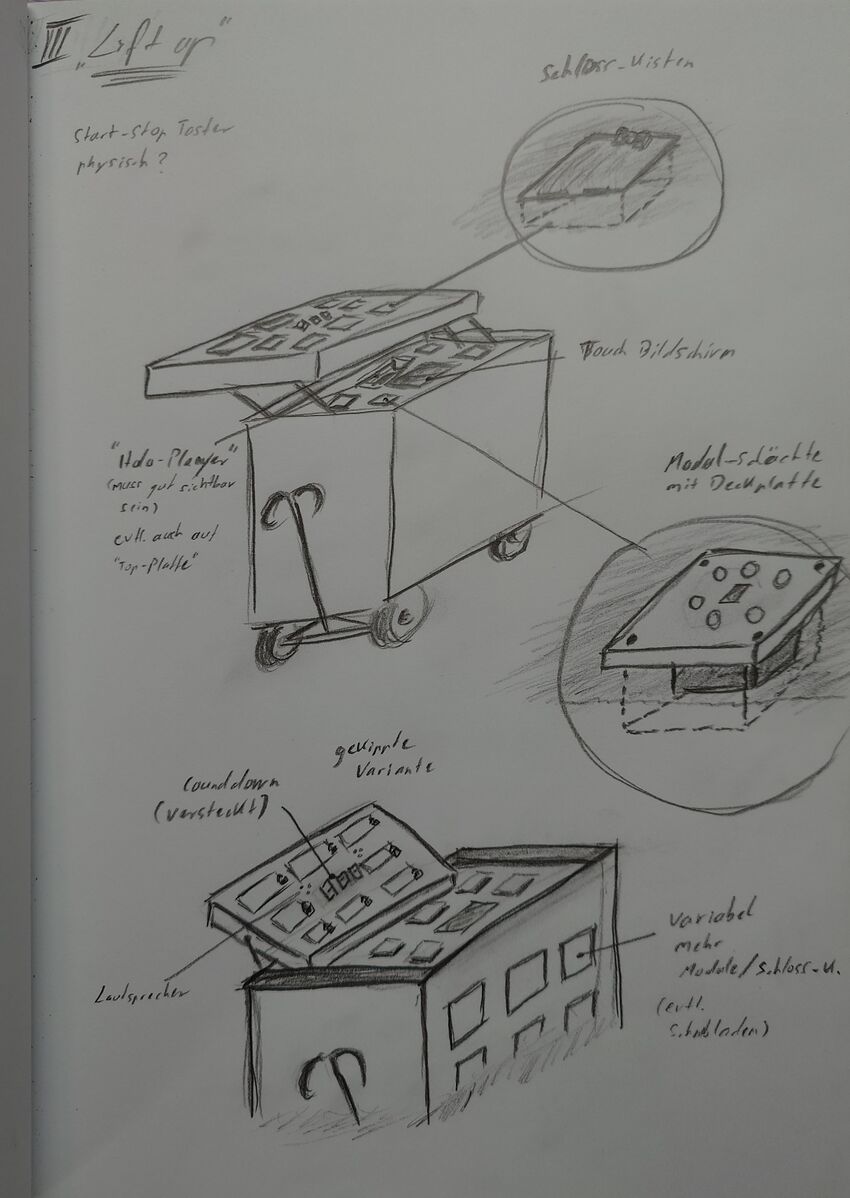 III "Lift up"
Schloss-Kisten
Start-Stop Taster
physisch?
Touch Bildschirm
"Holo-Player"
(muss gut sichtbar
sein)
evtl. auch auf
"Top-Platte"
Modul-Schächte
mit Deckplatte
gekippte
Variante
Countdown
(versteckt)
Variabel
mehr
Module/Schloss-K.
(evtl.
Schubladen)
Lautsprecher